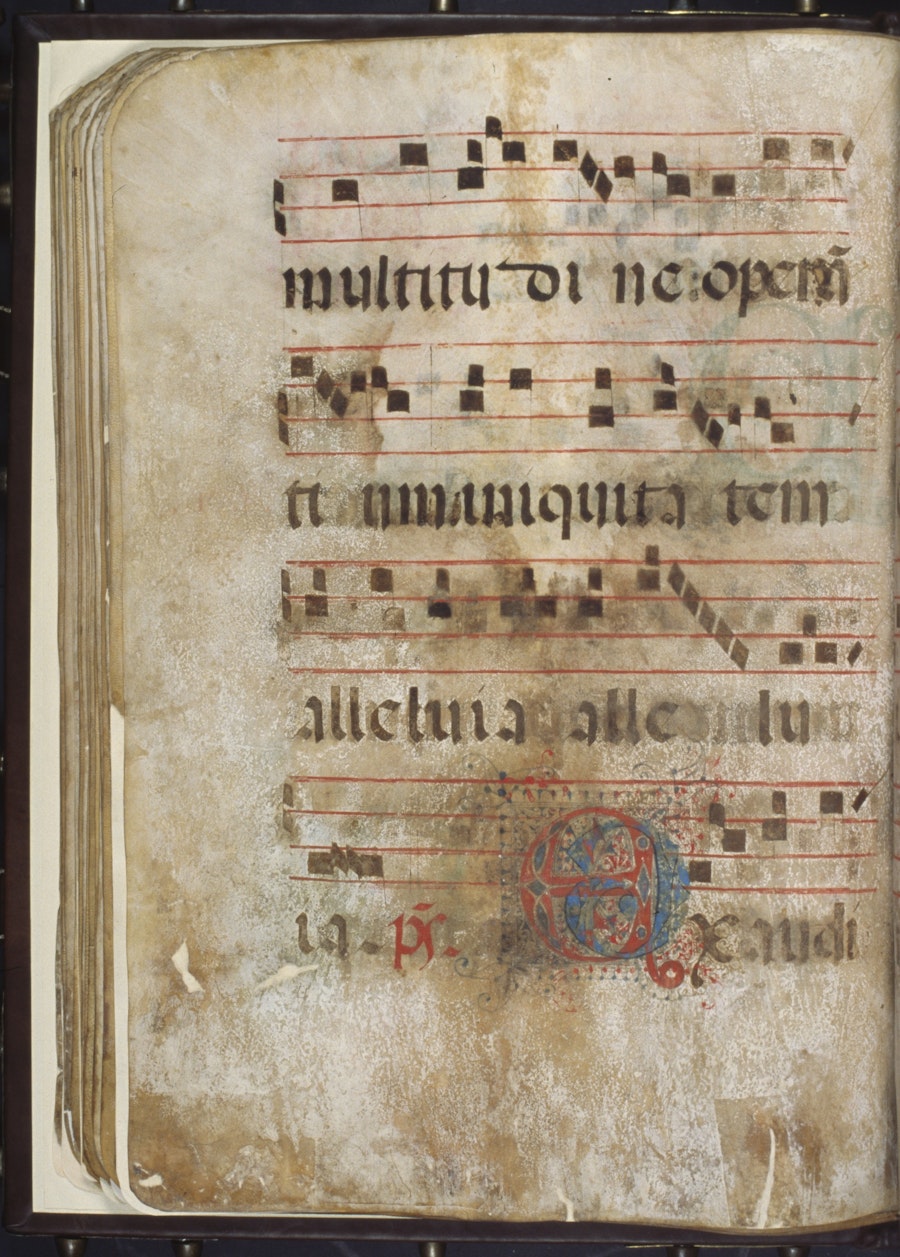 multitudi ne operan̄
ti um iniquita tem
alleluia alle lu
ia. ps̄. Exaudi